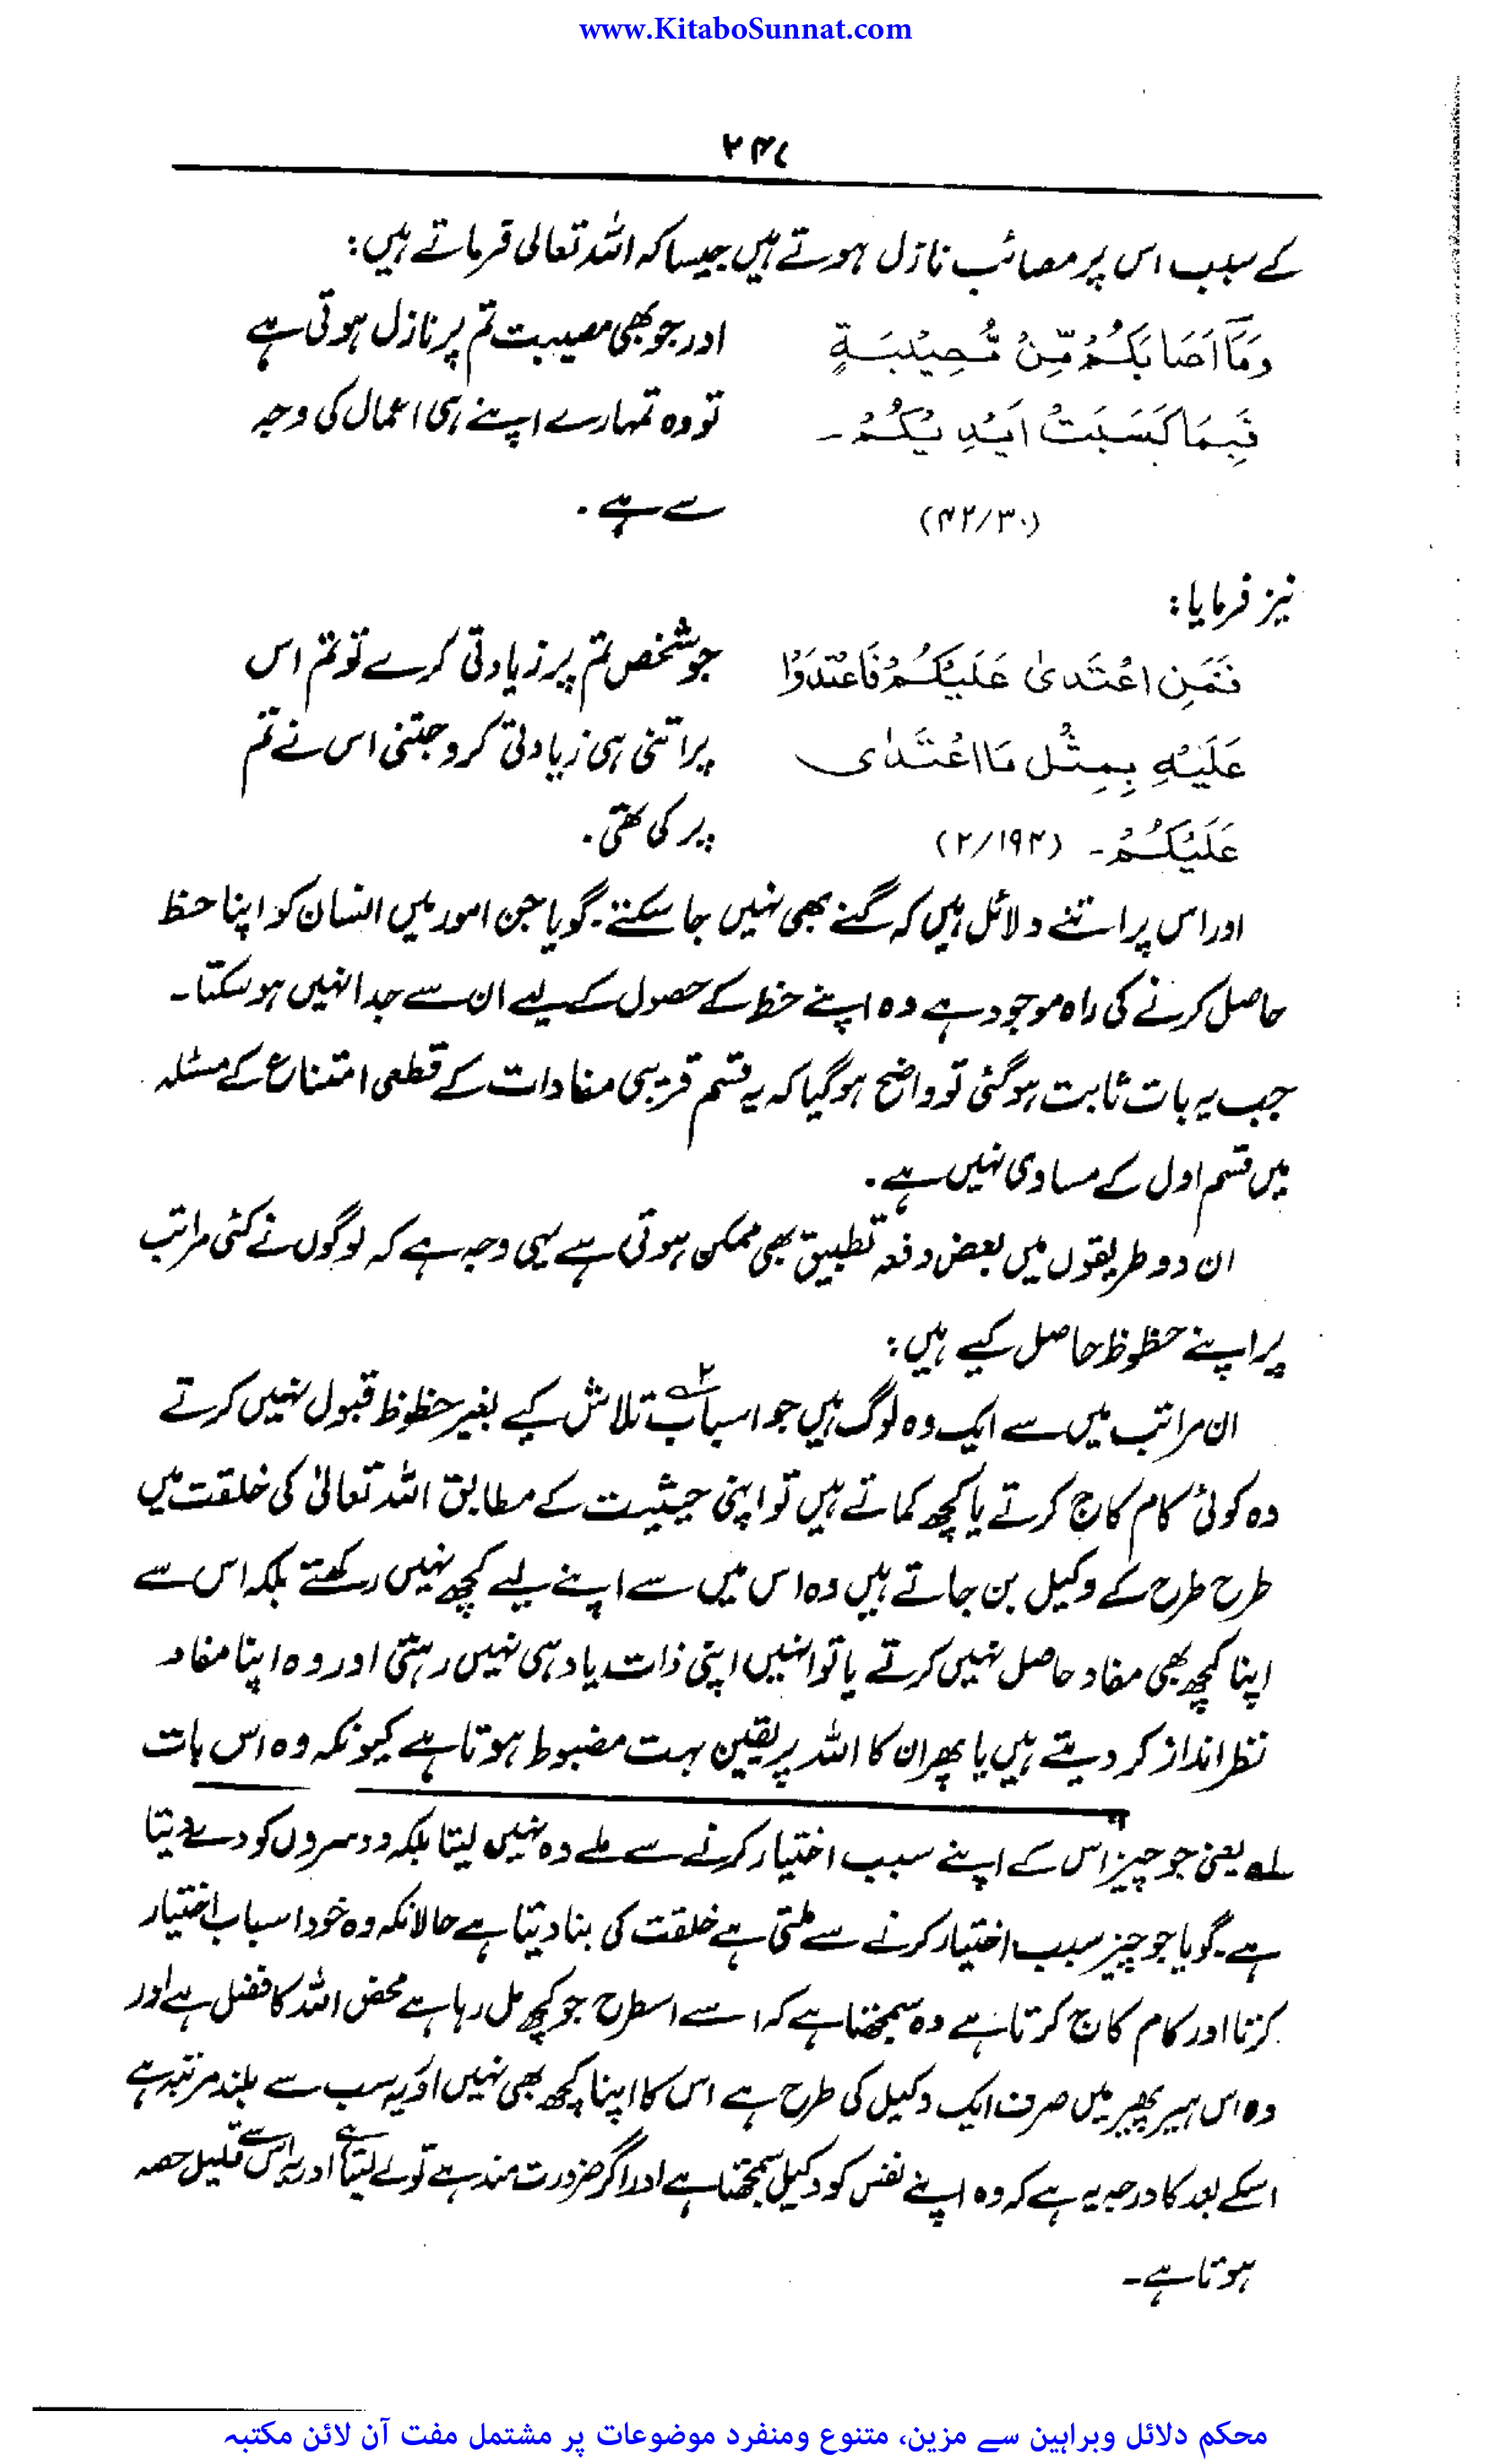 www.KitaboSunnat.com
۲۴۷
کے سبب اس پر مصائب نازل ہوتے ہیں جیسا کہ اللہ تعالی فرماتے ہیں:
وَمَآ اَصَابَكُمْ مِّنْ مُّصِيْبَةٍ اور جو بھی مصیبت تم پر نازل ہوتی ہے
فَبِمَا كَسَبَتْ اَيْدِيْكُمْ۔ تو وہ تمہارے اپنے ہی اعمال کی وجہ
(۴۲/۳۰) سے ہے۔
نیز فرمایا:
فَمَنِ اعْتَدىٰ عَلَيْكُمْ فَاعْتَدُوْا جو شخص تم پر زیادتی کرے تو تم اس
عَلَيْهِ بِمِثْلِ مَا اعْتَدٰى پر اتنی ہی زیادتی کرو جتنی اس نے تم
عَلَيْكُمْ۔ (۲/۱۹۴) پر کی تھی۔
اور اس پر اتنے دلائل ہیں کہ گنے بھی نہیں جا سکتے۔ گویا جن امور میں انسان کو اپنا حظ
حاصل کرنے کی راہ موجود ہے وہ اپنے حظ کے حصول کے لیے ان سے جدا نہیں ہو سکتا۔
جب یہ بات ثابت ہو گئی تو واضح ہو گیا کہ یہ قسم قریبی مفادات کے قطعی امتناع کے مسئلہ
میں قسم اول کے مساوی نہیں ہے۔
ان دو طریقوں میں بعض دفعہ تطبیق بھی ممکن ہوتی ہے یہی وجہ ہے کہ لوگوں نے کئی مراتب
پر اپنے حظوظ حاصل کیے ہیں:
ان مراتب میں سے ایک وہ لوگ ہیں جو اسباب۲؎ تلاش کیے بغیر حظوظ قبول نہیں کرتے
وہ کوئی کام کاج کرتے یا کچھ کماتے ہیں تو اپنی حیثیت کے مطابق اللہ تعالیٰ کی خلقت میں
طرح طرح کے وکیل بن جاتے ہیں وہ اس میں سے اپنے لیے کچھ نہیں رکھتے بلکہ اس سے
اپنا کچھ بھی مفاد حاصل نہیں کرتے یا تو انہیں اپنی ذات یاد ہی نہیں رہتی اور وہ اپنا مفاد
نظر انداز کر دیتے ہیں یا پھر ان کا اللہ پر یقین بہت مضبوط ہوتا ہے کیونکہ وہ اس بات
۱؎ یعنی جو چیز اس کے اپنے سبب اختیار کرنے سے ملے وہ نہیں لیتا بلکہ دوسروں کو دے دیتا
ہے۔ گویا جو چیز سبب اختیار کرنے سے ملتی ہے خلقت کی بنا دیتا ہے حالانکہ وہ خود اسباب اختیار
کرتا اور کام کاج کرتا ہے وہ سمجھتا ہے کہ اسے اسطرح جو کچھ مل رہا ہے محض اللہ کا فضل ہے اور
وہ اس ہیر پھیر میں صرف ایک وکیل کی طرح ہے اس کا اپنا کچھ بھی نہیں اور یہ سب سے بلند مرتبہ ہے
اسکے بعد کا درجہ یہ ہے کہ وہ اپنے نفس کو وکیل سمجھتا ہے اور اگر ضرورت مند ہے تو لے لیتا ہے اور یہ اس سے قلیل حصہ
ہوتا ہے۔
محکم دلائل وبراہین سے مزین، متنوع ومنفرد موضوعات پر مشتمل مفت آن لائن مکتبہ